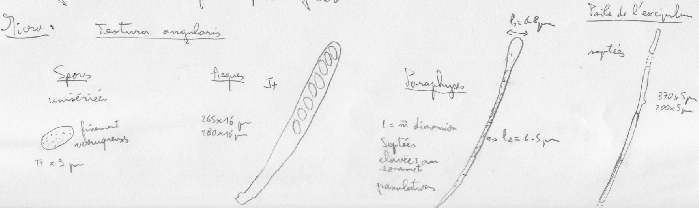 Micro: Textura angularis
Spores
unisériées
finement verruqueuses
17 x 9 µm
Asques
J+
265x16 µm
280x16 µm
Paraphyses
l = m̂ dimension
Septées
clavées au sommet
granulations
l1=6-8 µm
l2=4-5 µm
Poils de l'excipulum
septés
370x5 µm
200x5 µm